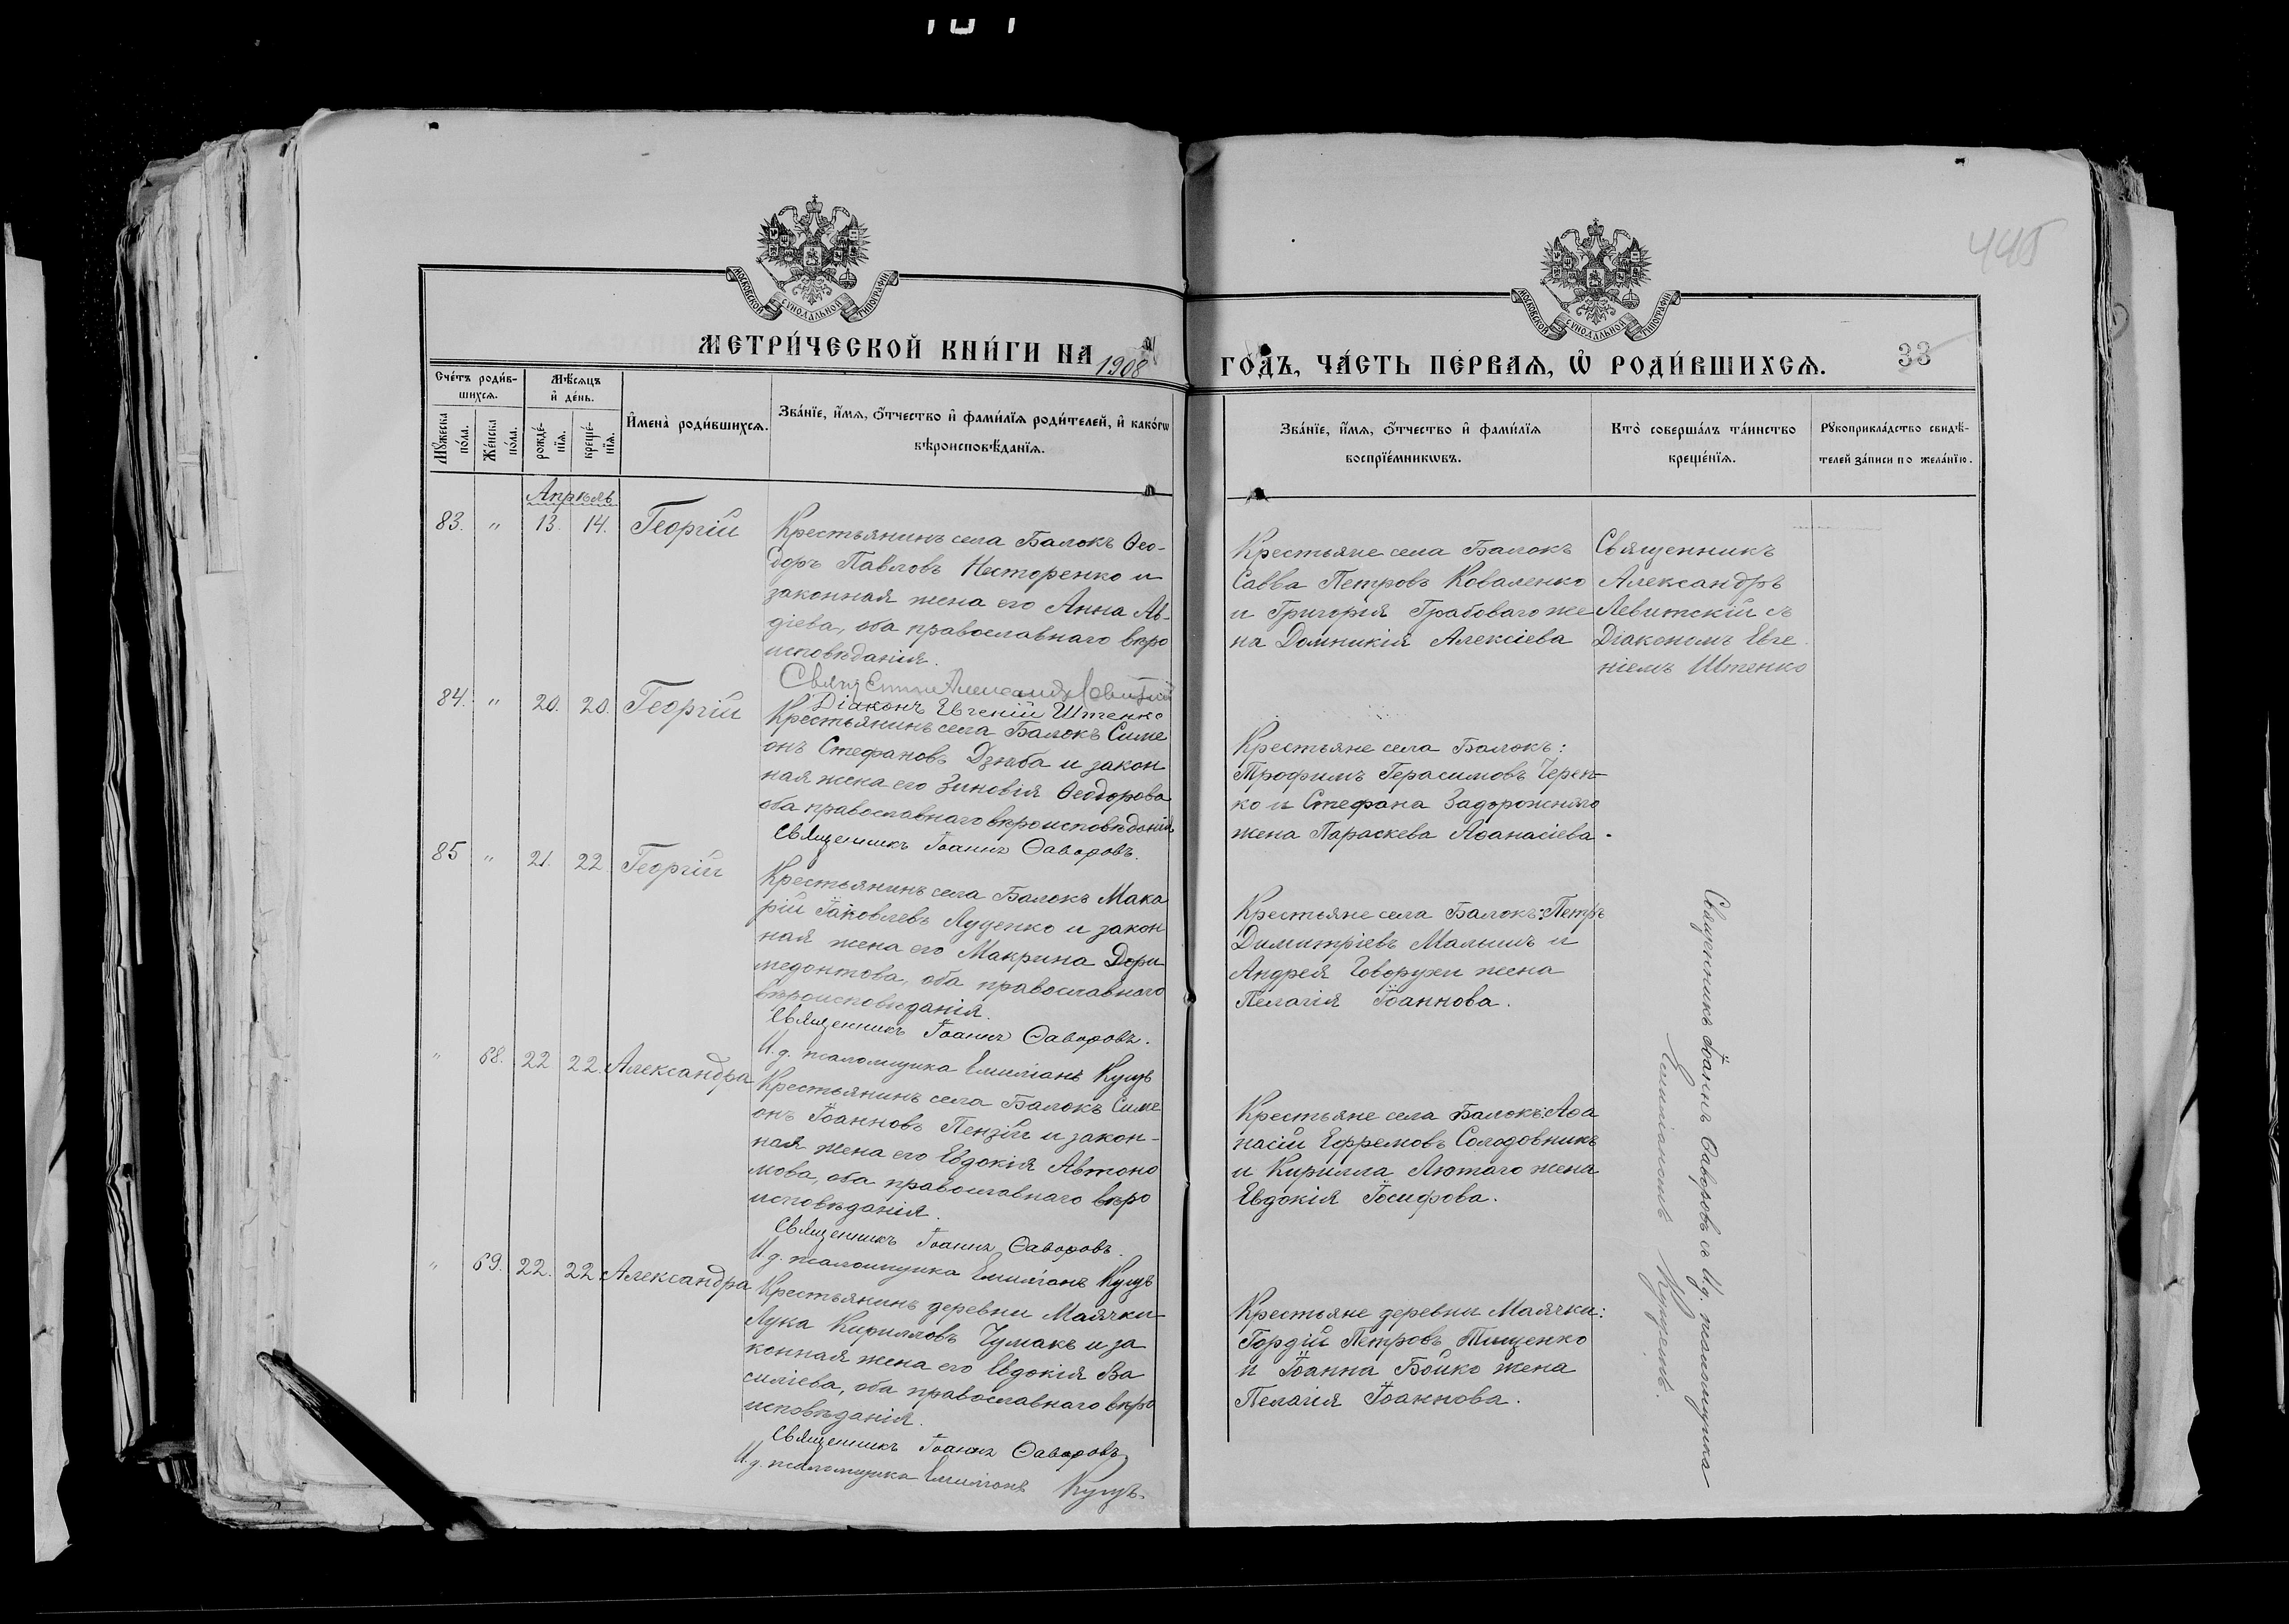 445
МОСКОВСКОЙ СѴНОДАЛЬНОЙ ТИПОГРАФІИ
МОСКОВСКОЙ СѴНОДАЛЬНОЙ ТИПОГРАФІИ
МЕТРИ́ЧЕСКОЙ КНИ́ГИ НА 1908
ГО́ДЪ, ЧА́СТЬ ПЕ́РВАѦ, Ѡ҆ РОДИ́ВШИХСѦ. 33
Сче́тъ роди́в-
шихсѧ.
Мꙋ́жеска
по́ла.
Же́нска
по́ла.
Мѣ́сѧцъ
и҆ де́нь.
рожде́-
нїѧ.
креще́-
нїѧ.
И҆мена̀ роди́вшихсѧ.
Зва́нїе, и҆́мѧ, ѻ҆́тчество и҆ фами́лїѧ роди́телей, и҆ како́гѡ
вѣроисповѣ́данїѧ.
Зва́нїе, и҆́мѧ, ѻ҆́тчество и҆ фами́лїѧ
воспрїе́мникѡвъ.
Кто̀ соверша́лъ та́инство
креще́нїѧ.
Рꙋкоприкла́дство свидѣ́-
телей за́писи по жела́нїю.
Апрѣль
83. " 13. 14. Георгій
Крестьянинъ села Балокъ Ѳео-
доръ Павловъ Несторенко и
законная жена его Анна Ав-
діева, оба православнаго вѣро
исповѣданія.
Священникъ Александръ Левитскій
Діаконъ Евгеній Штенко
Крестьяне села Балокъ
Савва Петровъ Коваленко
и Григорія Грабоваго же
на Домникія Алексіева
Священникъ
Александръ
Левитскій съ
Діакономъ Евге
ніемъ Штенко
84. " 20. 20. Георгій
Крестьянинъ села Балокъ Симе
онъ Стефановъ Дзюба и закон
ная жена его Зиновія Ѳеодорова
оба православнаго вѣроисповѣданія
Священникъ Іоаннъ Ѳаворовъ.
Крестьяне села Балокъ:
Трофимъ Герасимовъ Черен-
ко и Стефана Задорожняго
жена Параскева Аѳанасіева.
85 " 21. 22 Георгій
Крестьянинъ села Балокъ Мака
рій Іаковлевъ Луценко и закон
ная жена его Макрина Дори
медонтова, оба православнаго
вѣроисповѣданія.
Священникъ Іоаннъ Ѳаворовъ.
И. д. псаломщика Емиліанъ Кущъ
Крестьяне села Балокъ: Петръ
Димитріевъ Малышъ и
Андрея Говорухи жена
Пелагія Іоаннова.
" 68. 22 22. Александра
Крестьянинъ села Балокъ Симе
онъ Іоанновъ Пензій и закон-
ная жена его Евдокія Автоно
мова, оба православнаго вѣро
исповѣданія.
Священникъ Іоаннъ Ѳаворовъ.
И. д. псаломщика Емиліанъ Кущъ
Крестьяне села Балокъ: Аѳа
насій Ефремовъ Солодовникъ
и Кирилла Лютаго жена
Евдокія Іосифова.
" 69. 22. 22 Александра
Крестьянинъ деревни Маячки
Лука Кирилловъ Чумакъ и за
конная жена его Евдокія Ва
силіева, оба православнаго вѣро
исповѣданія.
Священникъ Іоаннъ Ѳаворовъ
И. д. псаломщика Емиліанъ Кущъ.
Крестьяне деревни Маячки:
Гордій Петровъ Тищенко
и Іоанна Бойко жена
Пелагія Іоаннова.
Священникъ Іоаннъ Ѳаворовъ съ И. д. псаломщика
Емиліаномъ Кущемъ.